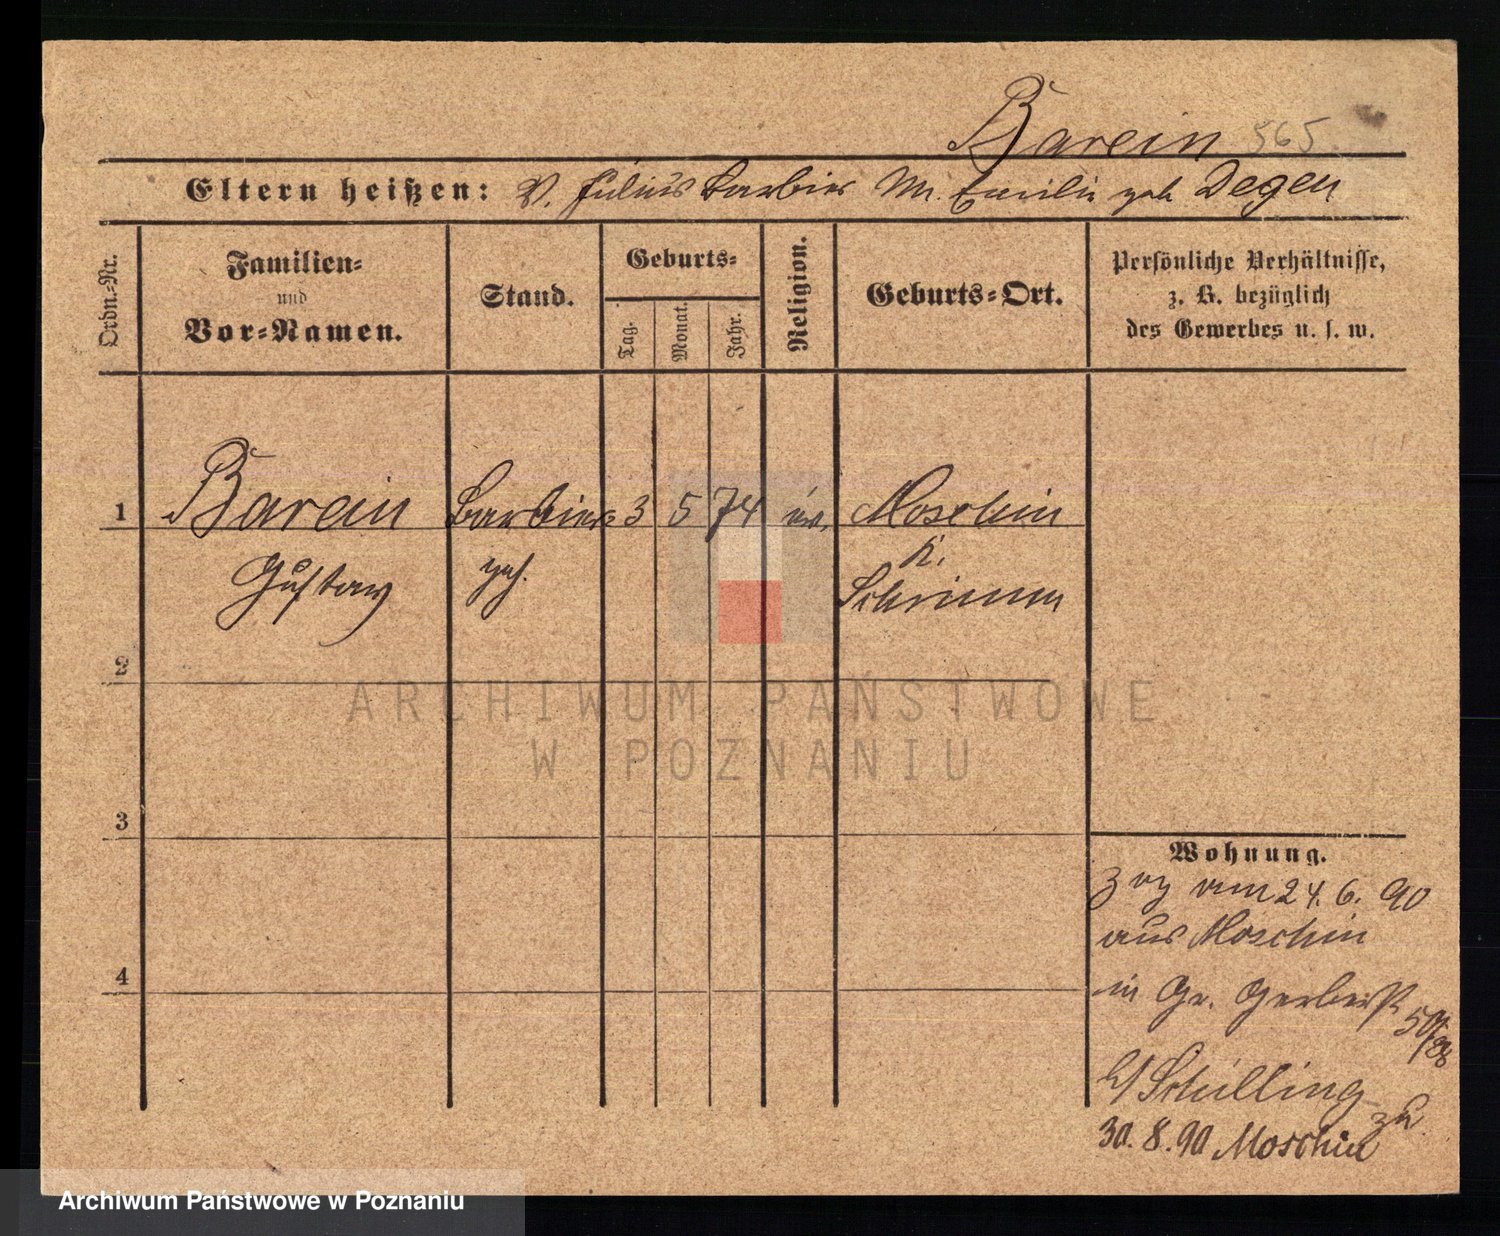 Barein 565.
Eltern heißen: V. Julius Barbier M. Emilie geb Degen
Ordn.-Nr.
Familien-
und
Vor-Namen.
Stand.
Geburts-
Tag.
Monat.
Jahr.
Religion.
Geburts-Ort.
Persönliche Verhältnisse,
z. B. bezüglich
des Gewerbes u. s. w.
1 Barein Barbier 3 5 74 ev. Moschin
Gustav geh. K. Schrimm
2
3
4
Wohnung.
zug am 24. 6. 90
aus Moschin
in Gr. Gerberst
50
b/ Schilling
zu
30. 8. 90 Moschin
ARCHIWUM PAŃSTWOWE
W POZNANIU
Archiwum Państwowe w Poznaniu